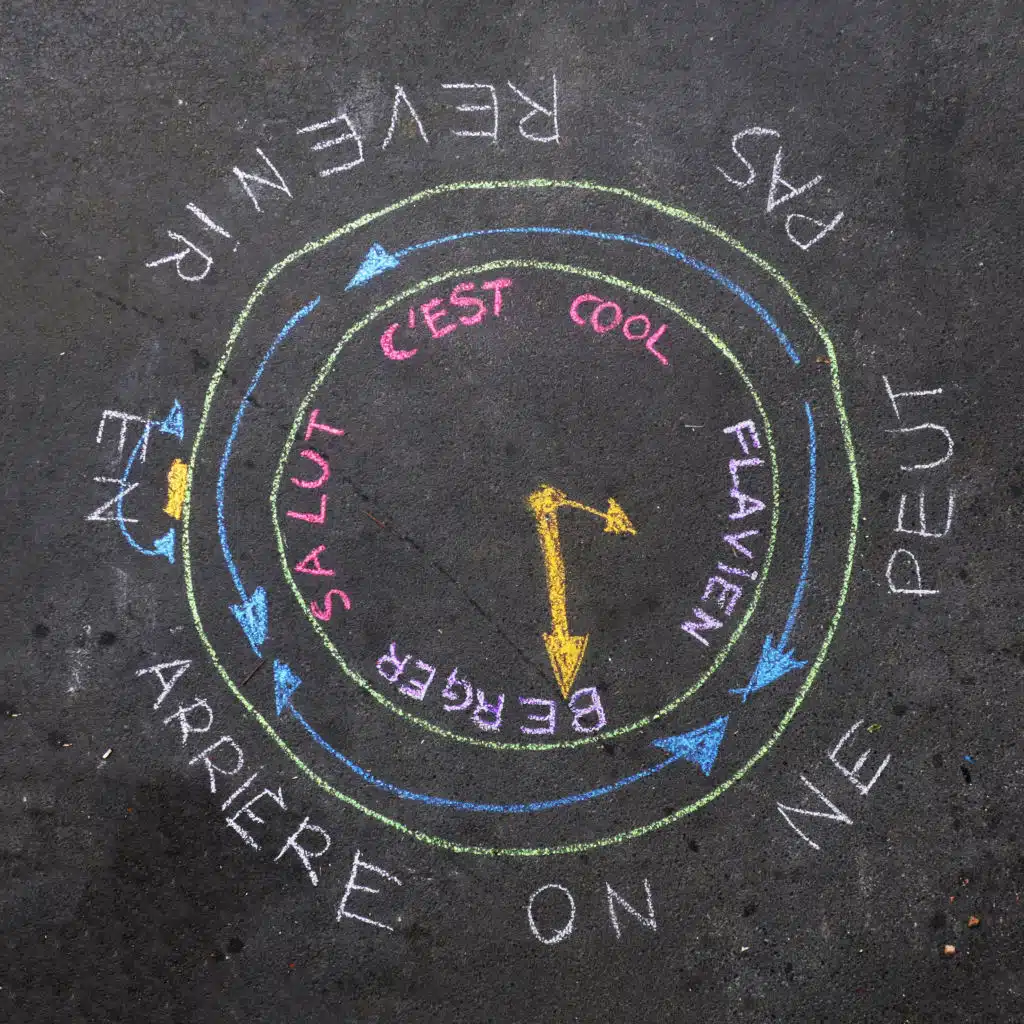 ON NE PEUT PAS REVENIR EN ARRIÈRE
SALUT C'EST COOL
FLAVIEN BERGER